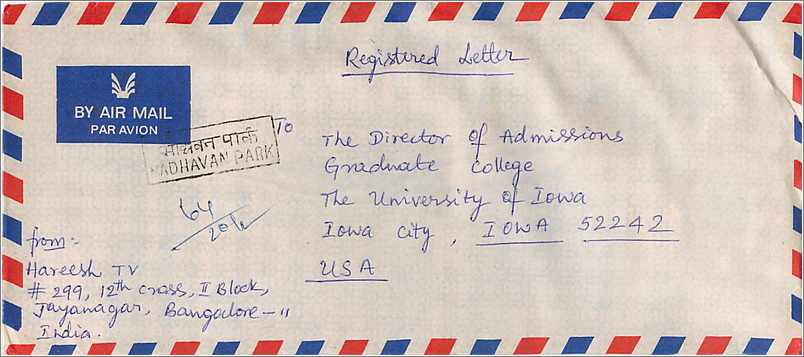 Registered Letter
BY AIR MAIL
PAR AVION
माधवन पार्क
MADHAVAN PARK
To
The Director of Admissions
Graduate College
The University of Iowa
Iowa City, IOWA 52242
USA
from:-
Hareesh TV
# 299, 12th Cross, II Block,
Jayanagar, Bangalore - 11
India.